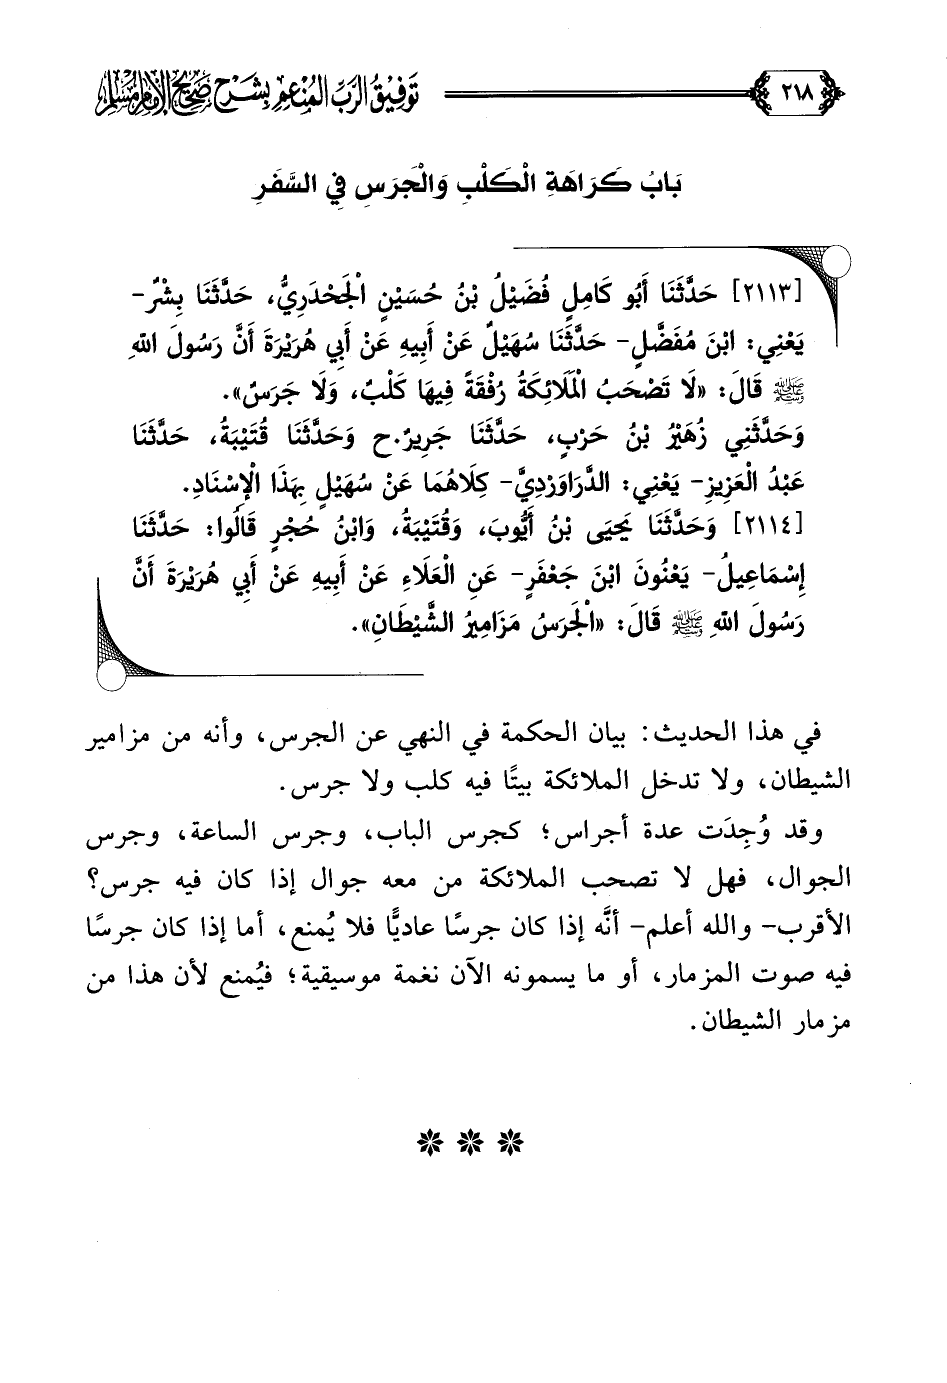 ٢١٨ توفيق الرب المنعم بشرح صحيح الإمام مسلم
بَابُ كَرَاهَةِ الْكَلْبِ وَالْجَرَسِ فِي السَّفَرِ
[٢١١٣] حَدَّثَنَا أَبُو كَامِلٍ فُضَيْلُ بْنُ حُسَيْنٍ الْجَحْدَرِيُّ، حَدَّثَنَا بِشْرٌ-
يَعْنِي: ابْنَ مُفَضَّلٍ- حَدَّثَنَا سُهَيْلٌ عَنْ أَبِيهِ عَنْ أَبِي هُرَيْرَةَ أَنَّ رَسُولَ اللهِ
ﷺ قَالَ: «لَا تَصْحَبُ الْمَلَائِكَةُ رُفْقَةً فِيهَا كَلْبٌ، وَلَا جَرَسٌ».
وَحَدَّثَنِي زُهَيْرُ بْنُ حَرْبٍ، حَدَّثَنَا جَرِيرٌ.ح وَحَدَّثَنَا قُتَيْبَةُ، حَدَّثَنَا
عَبْدُ الْعَزِيزِ- يَعْنِي: الدَّرَاوَرْدِيَّ- كِلَاهُمَا عَنْ سُهَيْلٍ بِهَذَا الْإِسْنَادِ.
[٢١١٤] وَحَدَّثَنَا يَحْيَى بْنُ أَيُّوبَ، وَقُتَيْبَةُ، وَابْنُ حُجْرٍ قَالُوا: حَدَّثَنَا
إِسْمَاعِيلُ- يَعْنُونَ ابْنَ جَعْفَرٍ- عَنِ الْعَلَاءِ عَنْ أَبِيهِ عَنْ أَبِي هُرَيْرَةَ أَنَّ
رَسُولَ اللهِ ﷺ قَالَ: «الْجَرَسُ مَزَامِيرُ الشَّيْطَانِ».
في هذا الحديث: بيان الحكمة في النهي عن الجرس، وأنه من مزامير
الشيطان، ولا تدخل الملائكة بيتًا فيه كلب ولا جرس.
وقد وُجِدَت عدة أجراس؛ كجرس الباب، وجرس الساعة، وجرس
الجوال، فهل لا تصحب الملائكة من معه جوال إذا كان فيه جرس؟
الأقرب- والله أعلم- أنَّه إذا كان جرسًا عاديًّا فلا يُمنع، أما إذا كان جرسًا
فيه صوت المزمار، أو ما يسمونه الآن نغمة موسيقية؛ فيُمنع لأن هذا من
مزمار الشيطان.